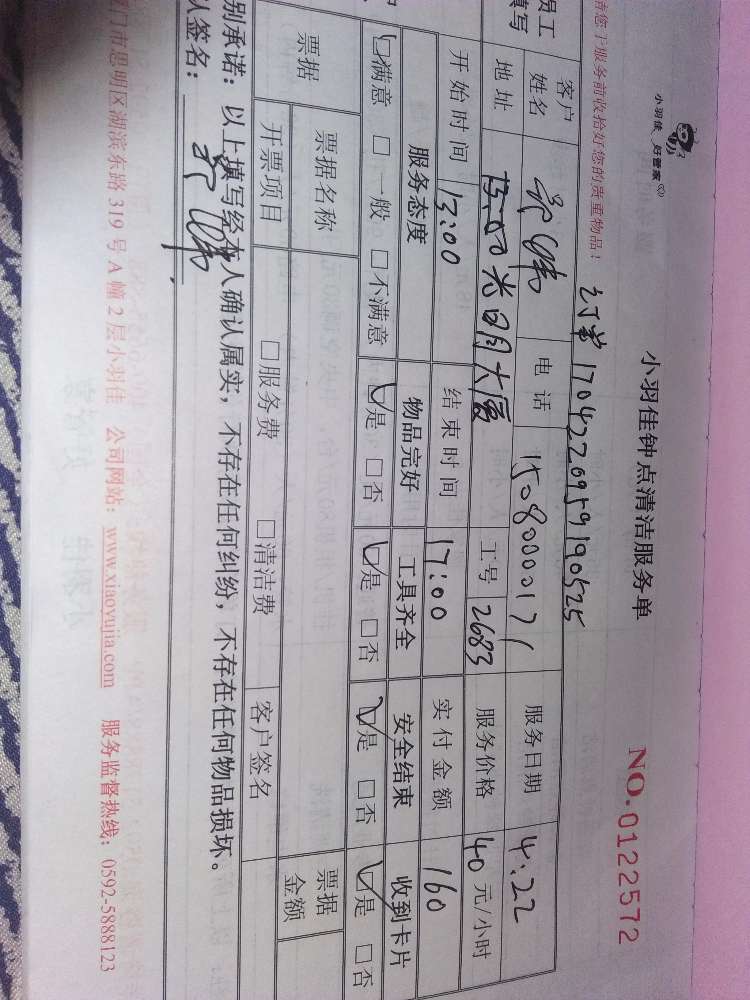 小羽佳 好管家
小羽佳钟点清洁服务单
NO.0122572
请您于服务前收拾好您的贵重物品!
订单170422095919052５
员工填写
客户姓名 电话 15080000171 服务日期 4.22
地址 光明大厦 工号 2683 服务价格 40 元/小时
开始时间 13:00 结束时间 17:00 实付金额 160
服务态度 物品完好 工具齐全 安全结束 收到卡片
☑满意 □一般 □不满意 ☑是 □否 ☑是 □否 ☑是 □否 ☑是 □否
票据 票据名称 票据金额
开票项目 □服务费 □清洁费 客户签名
别承诺:以上填写经本人确认属实,不存在任何纠纷,不存在任何物品损坏。
人签名:
厦门市思明区湖滨东路 319 号 A 幢 2 层小羽佳 公司网站:www.xiaoyujia.com 服务监督热线:0592-5888123